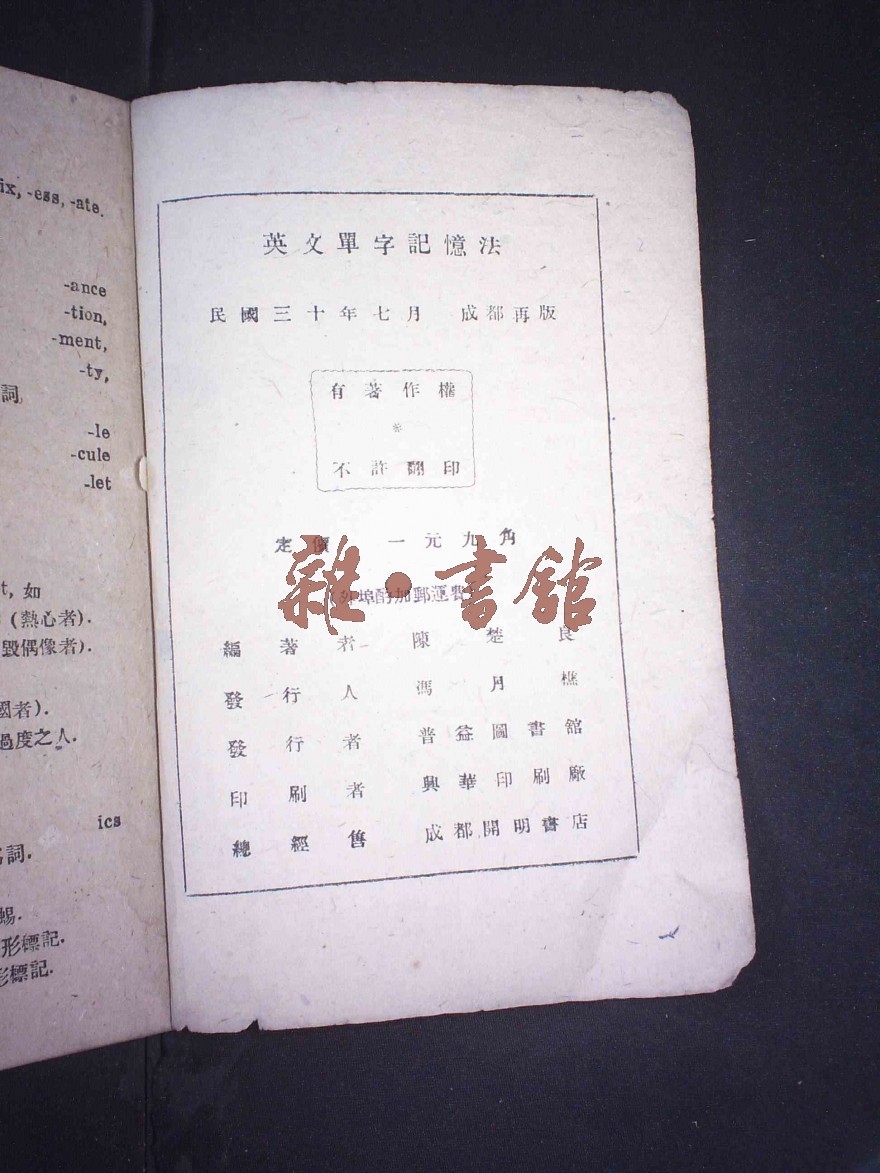 ix, -ess, -ate.
-ance
-tion,
-ment,
-ty,
詞
-le
-cule
-let
如
(熱心者).
毀偶像者).
國者).
過度之人.
ics
詞.
蜴.
形標記.
形標記.
英文單字記憶法
民國三十年七月 成都再版
有著作權
※
不許翻印
定價 一元九角
(外埠酌加郵運費)
雜·書館
編著者 陳楚良
發行人 馮月樵
發行者 普益圖書館
印刷者 興華印刷廠
總經售 成都開明書店